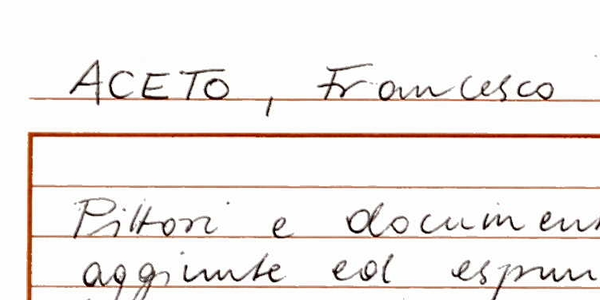 ACETO, Francesco
Pittori e documen
aggiunte ed espun